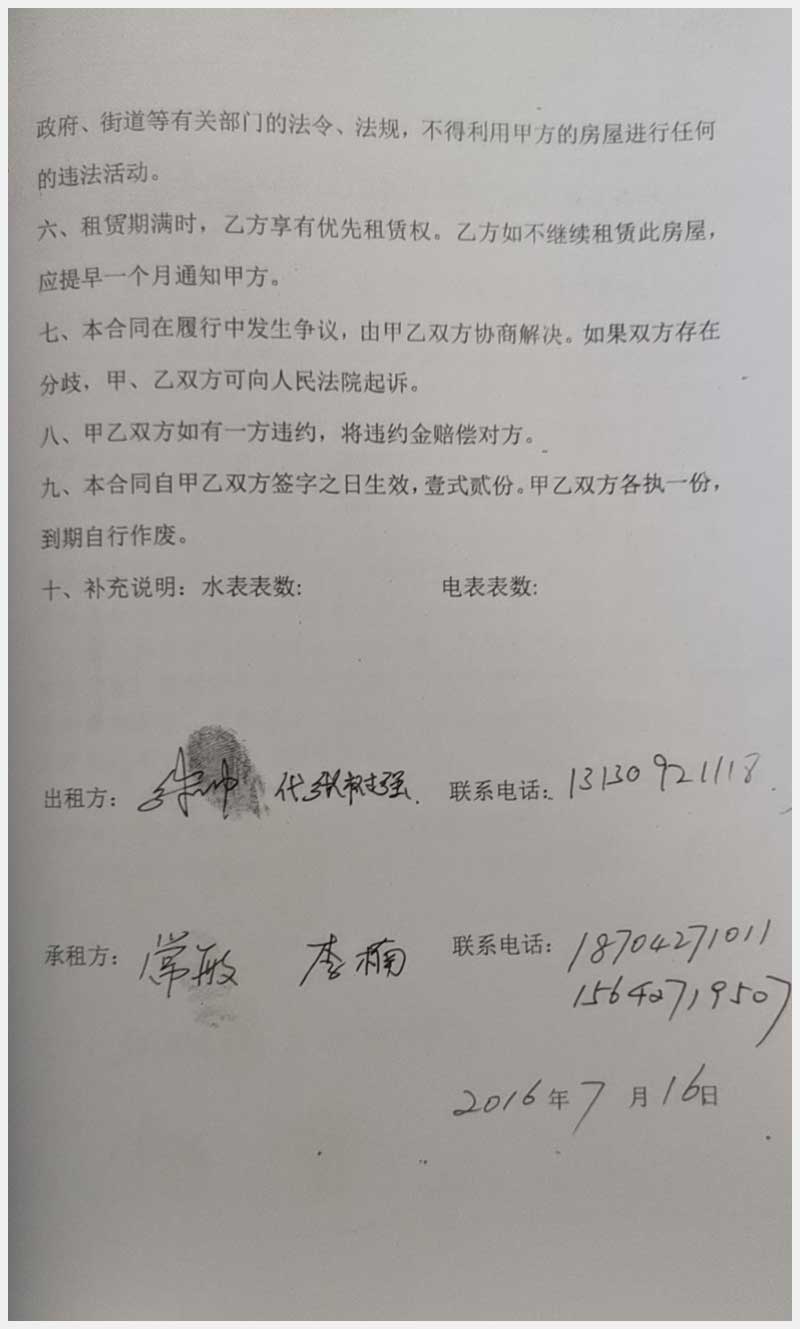 政府、街道等有关部门的法令、法规，不得利用甲方的房屋进行任何
的违法活动。
六、租赁期满时，乙方享有优先租赁权。乙方如不继续租赁此房屋，
应提早一个月通知甲方。
七、本合同在履行中发生争议，由甲乙双方协商解决。如果双方存在
分歧，甲、乙双方可向人民法院起诉。
八、甲乙双方如有一方违约，将违约金赔偿对方。
九、本合同自甲乙双方签字之日生效，壹式贰份。甲乙双方各执一份，
到期自行作废。
十、补充说明：水表表数: 电表表数:
出租方： 代 联系电话：13130921118
承租方：常敏 李楠 联系电话：18704271011
15642719507
2016年7月16日